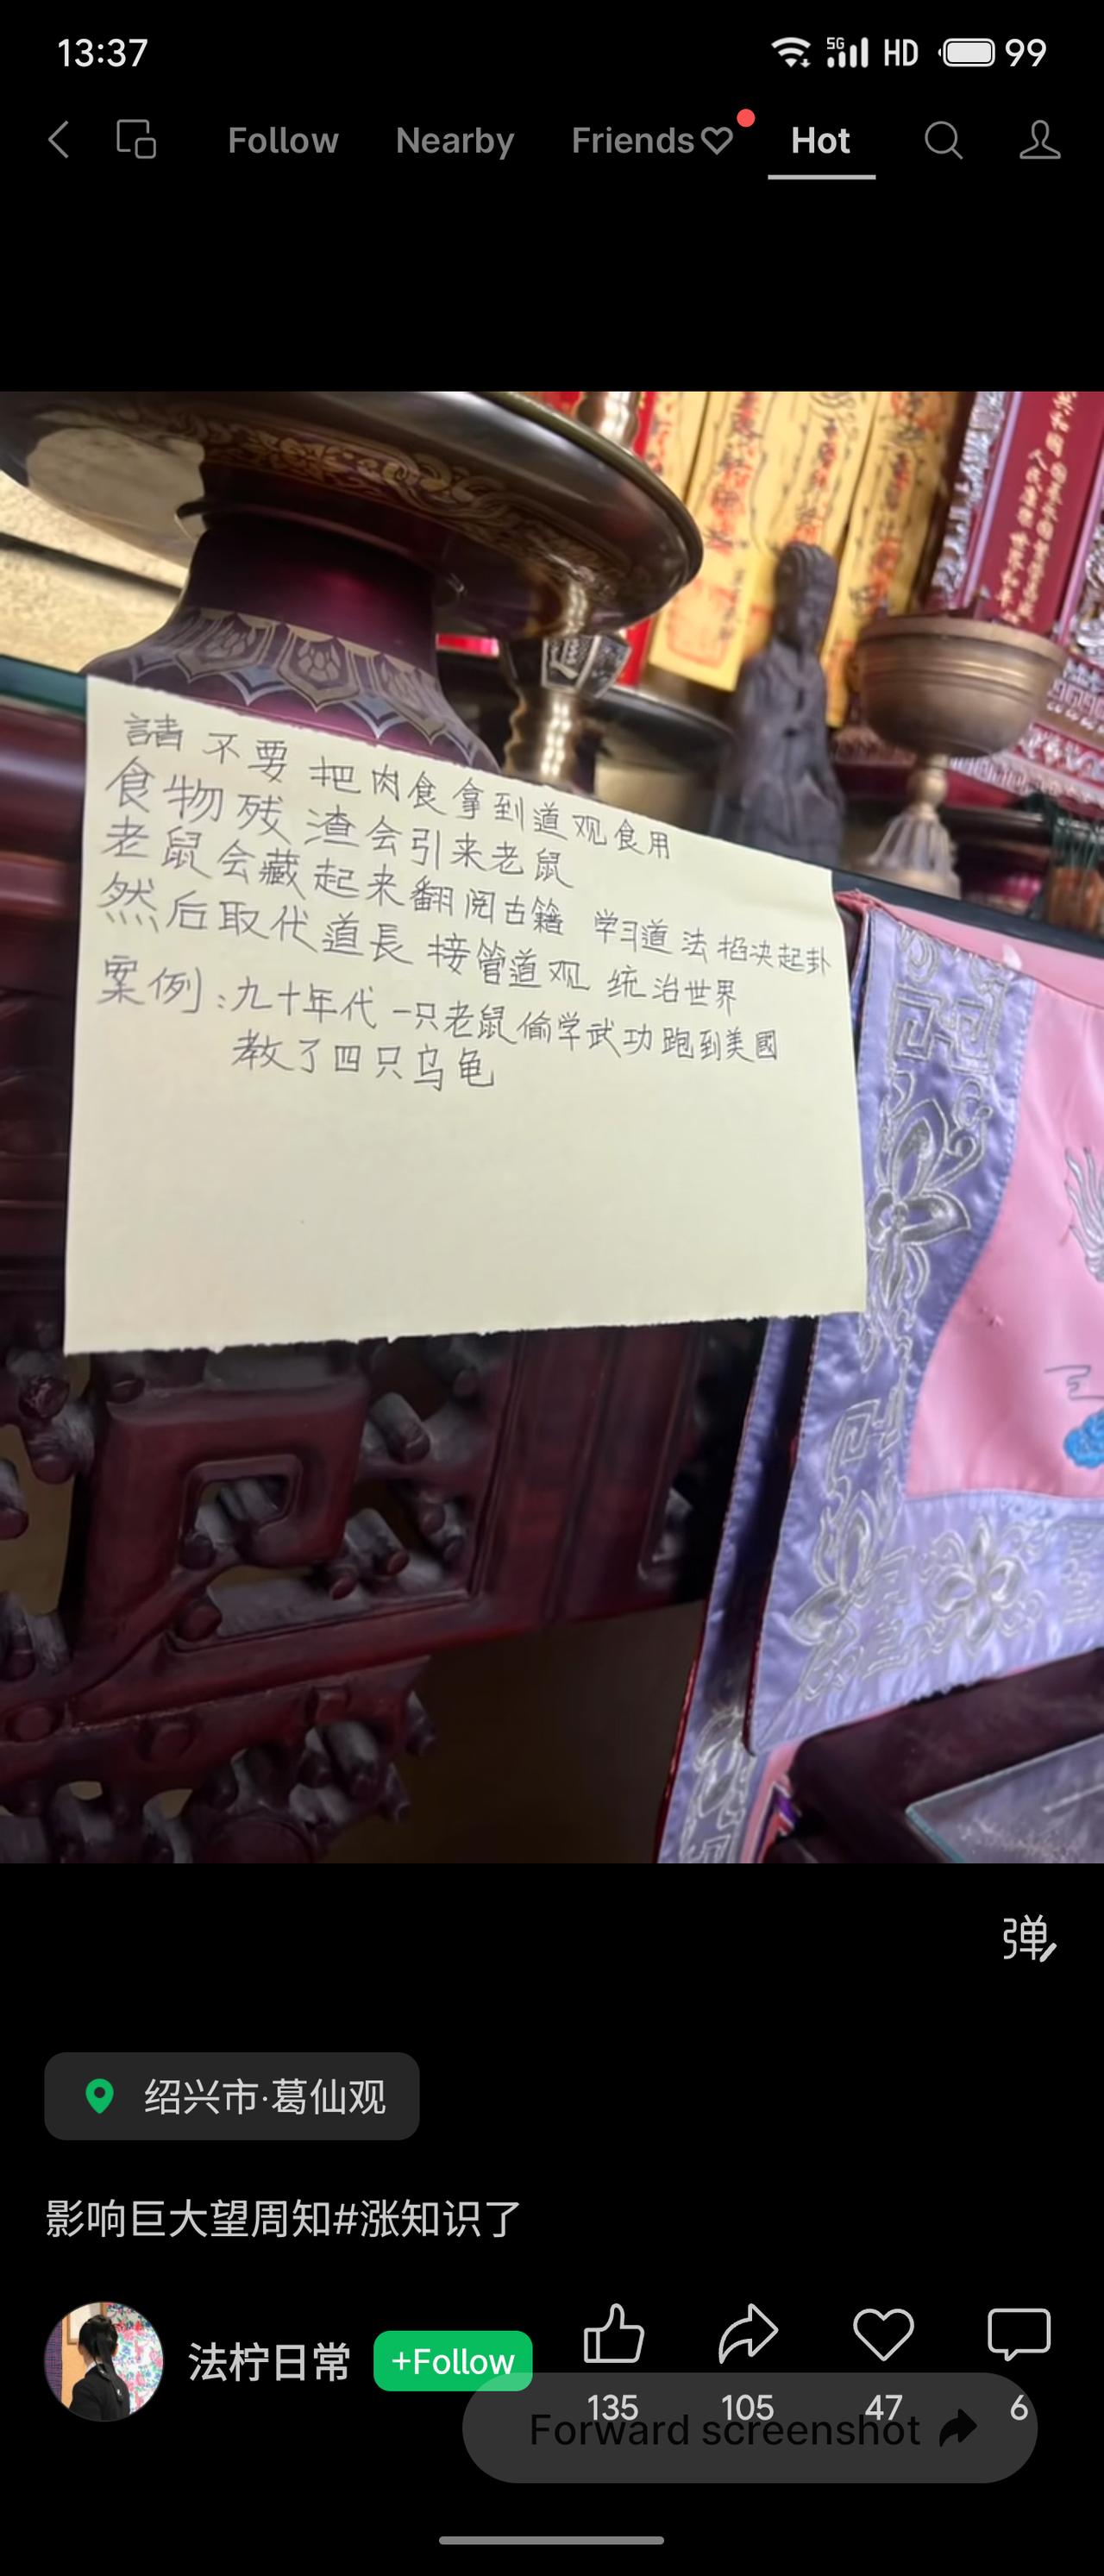 13:37
5G HD 99
Follow Nearby Friends Hot
請不要把肉食拿到道观食用
食物残渣会引来老鼠
老鼠会藏起来翻阅古籍 学习道法掐决起卦
然后取代道長 接管道观 统治世界
案例:九十年代 一只老鼠偷学武功跑到美國
教了四只乌龟
弹
绍兴市·葛仙观
影响巨大望周知#涨知识了
法柠日常 +Follow
135 105 47 6
Forward screenshot